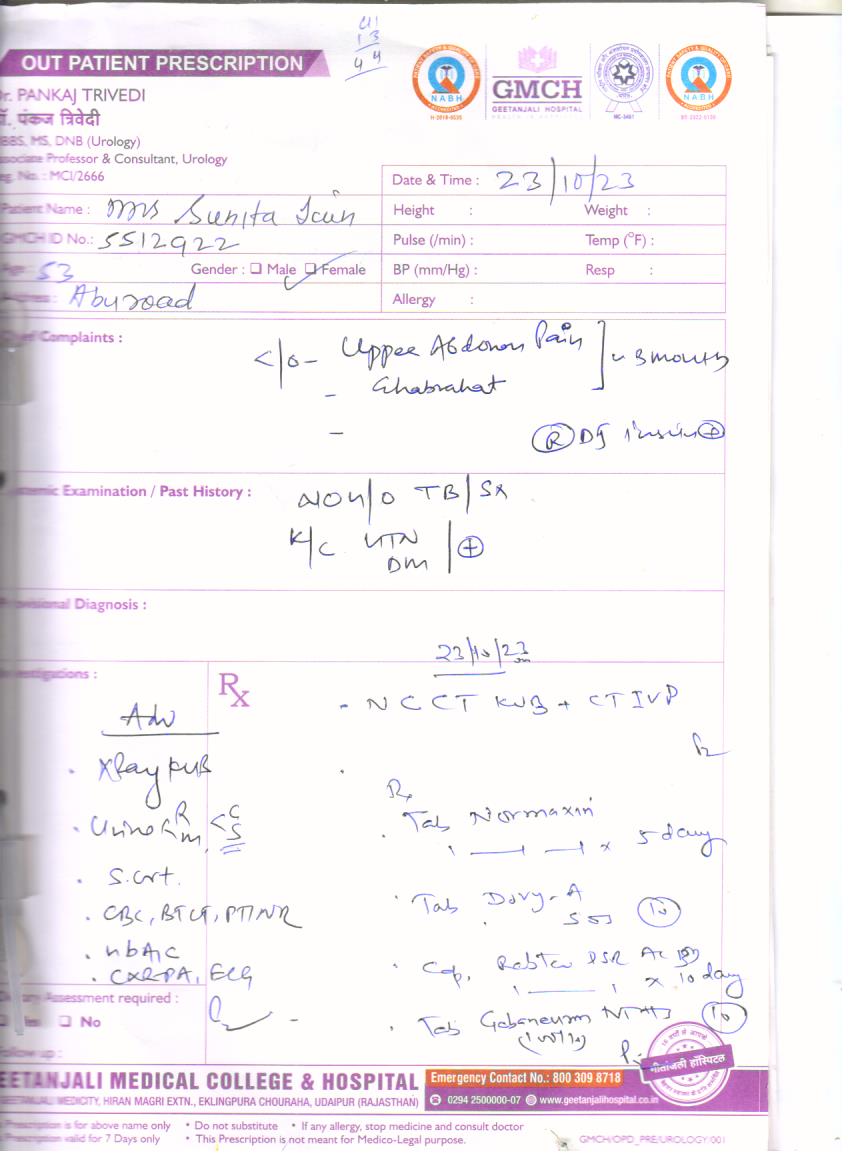 41
13
44
OUT PATIENT PRESCRIPTION
Dr. PANKAJ TRIVEDI
डॉ. पंकज त्रिवेदी
MBBS, MS, DNB (Urology)
Associate Professor & Consultant, Urology
Reg. No. : MCI/2666
NABH
H-2018-0535
GMCH
GEETANJALI HOSPITAL
MC-3461
NABH
Patient Name : Mrs Sunita Jain
GMCH ID No.: 5512922
Age : 53 Gender : Male Female
Address : Abu road
Date & Time : 23/10/23
Height : Weight :
Pulse (/min) : Temp (°F) :
BP (mm/Hg) : Resp :
Allergy :
Chief Complaints :
C/O - Upper Abdomen Pain
- Ghabrahat
~ 3 month
-
(R) DJ insitu +
Systemic Examination / Past History :
NO H/O TB/Sx
K/C HTN
DM
+
Provisional Diagnosis :
23/10/23
Investigations :
Adv
• Xray KUB
• Urine R/M, C/S
• S. crt.
• CBC, BTCT, PT/INR
• HbA1C
• CXR-PA, ECG
Rx
- NCCT KUB + CT IVP
Rx
• Tab Normaxin
1 — — 1 x 5 day
• Tab
10
• Cap.
x 10 day
• Tab
10
Dietary Assessment required :
Yes No
Follow up :
गीतांजली हॉस्पिटल
GEETANJALI MEDICAL COLLEGE & HOSPITAL
GEETANJALI MEDICITY, HIRAN MAGRI EXTN., EKLINGPURA CHOURAHA, UDAIPUR (RAJASTHAN)
Emergency Contact No.: 800 309 8718
0294 2500000-07 www.geetanjalihospital.co.in
Prescription is for above name only • Do not substitute • If any allergy, stop medicine and consult doctor
Prescription valid for 7 Days only • This Prescription is not meant for Medico-Legal purpose.
GMCH/OPD_PRE/UROLOGY/001